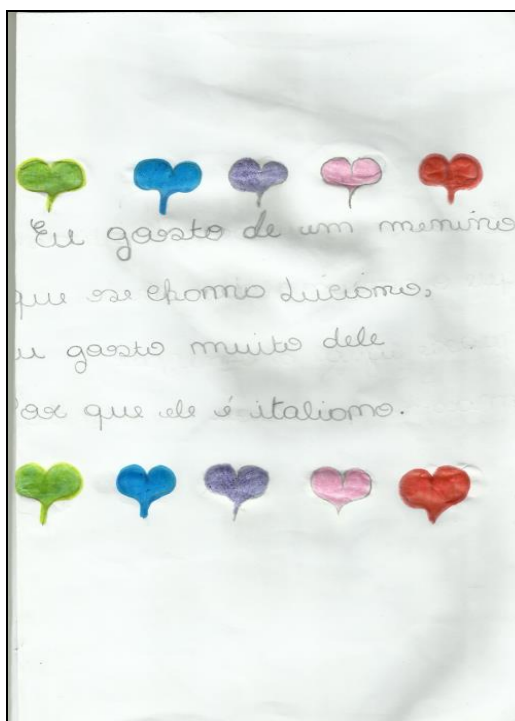 Eu gosto de um menino
que se chama Luciano,
u gosto muito dele
Por que ele é italiano.